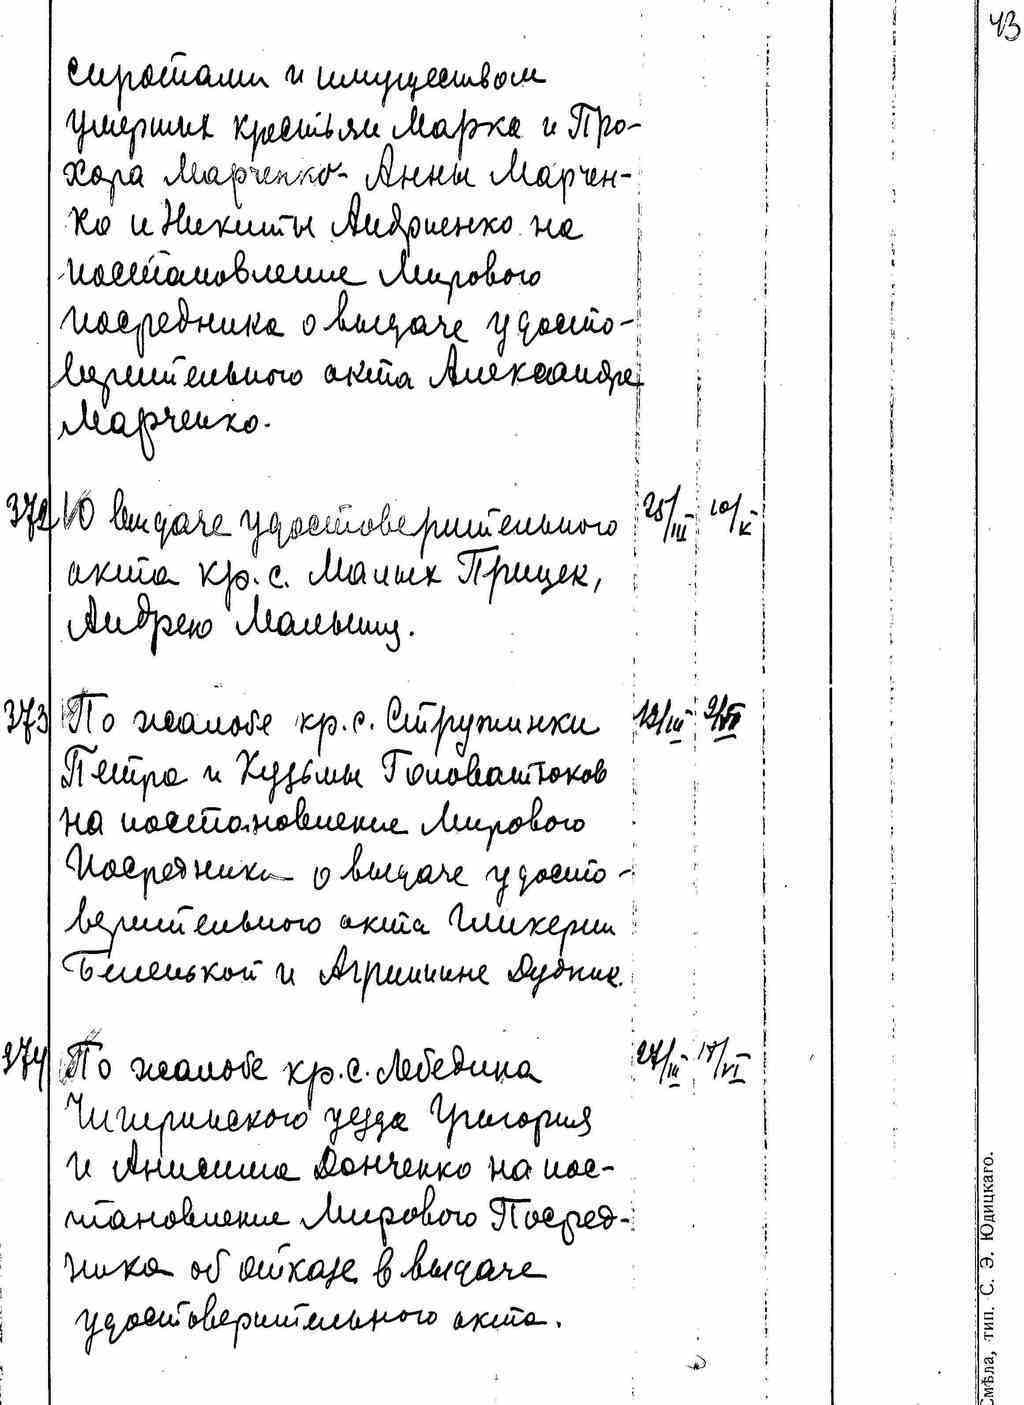 43
сиротами и имуществом
умерших крестьян Марка и Про-
хора Марченко - Анны Марчен-
ко и Никиты Андриенко на
постановление Мирового
посредника о выдаче удосто-
верительного акта Александре
Марченко.
372 О выдаче удостоверительного 25/III 10/X
акта кр. с. Малых Прицек,
Андрею Малышу.
373 По жалобе кр. с. Стружинки 12/III 9/VII
Петра и Кузьмы Головастоков
на постановление Мирового
Посредника о выдаче удосто-
верительного акта Гликерии
Беленькой и Агриппине Дудник.
374 По жалобе кр. с. Лебедина 27/III 18/VI
Чигиринского уезда Григория
и Анисима Донченко на пос-
тановление Мирового Посред-
ника об отказе в выдаче
удостоверительного акта.
Смѣла, тип. С. Э. Юдицкаго.